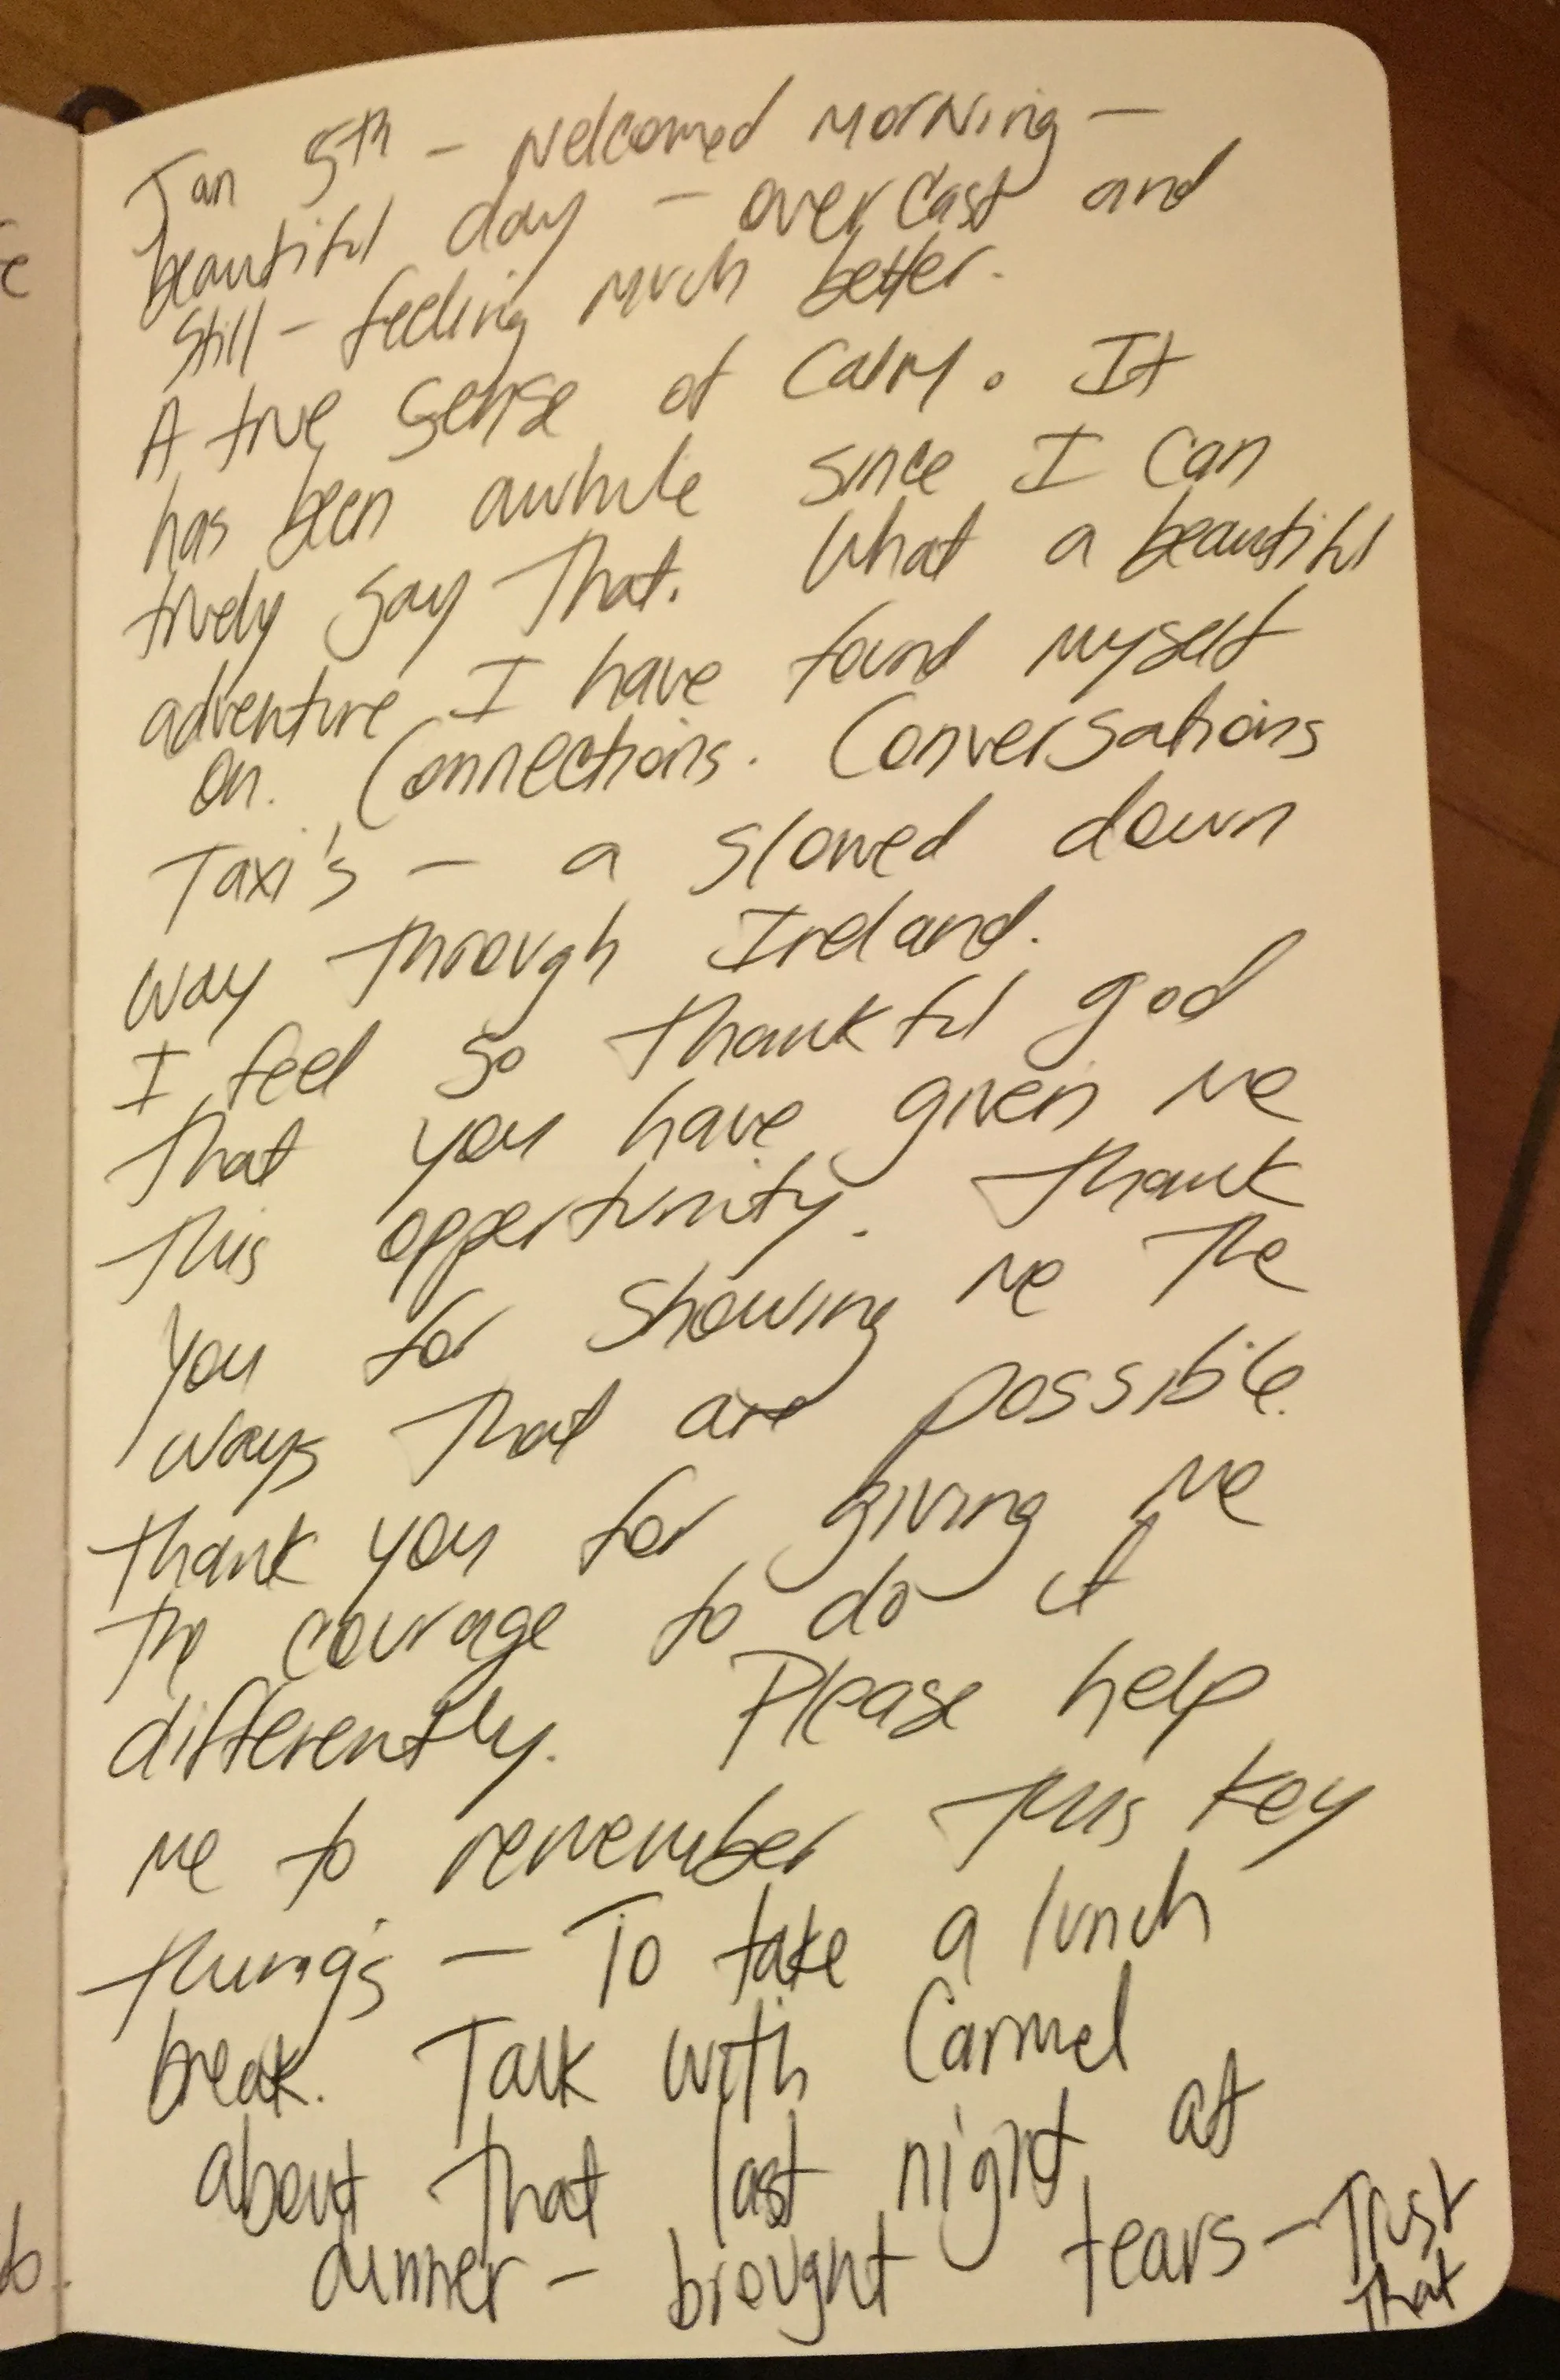 Jan 5th - Welcomed morning -
beautiful day - overcast and
still - feeling much better.
A true sense of calm. It
has been awhile since I can
truely say that. What a beautiful
adventure I have found myself
on. Connections. Conversations
Taxi's - a slowed down
way through Ireland.
I feel so thankful god
that you have given me
this oppertunity. Thank
you for showing me the
ways that are possible.
thank you for giving me
the courage to do it
differently. Please help
me to remember this key
thing's - To take a lunch
break. Talk with Carmel
about that last night at
dinner - brought tears - Trust
that